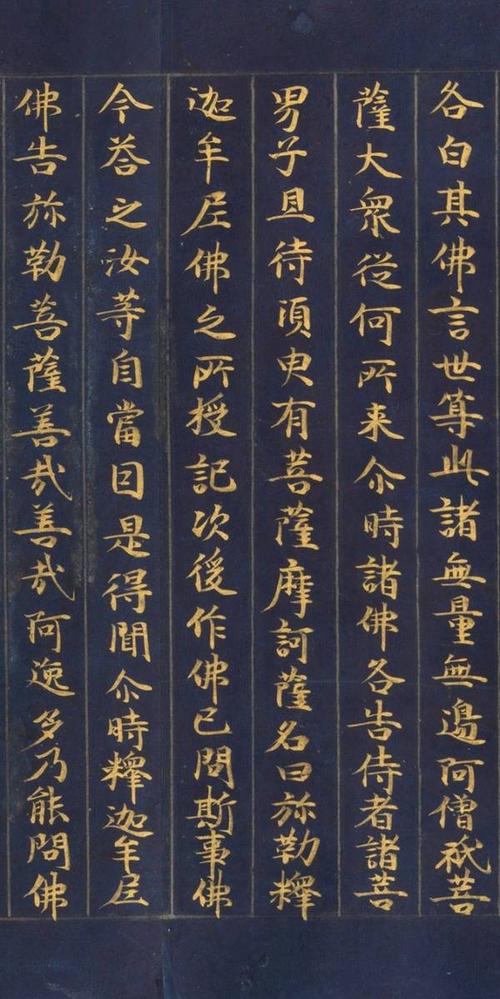 各白其佛言世尊此諸無量無邊阿僧祇菩
薩大衆從何所来尒時諸佛各告侍者諸菩
男子且待湏臾有菩薩摩訶薩名曰弥勒釋
迦牟尼佛之所授記次後作佛已問斯事佛
今荅之汝等自當因是得聞尒時釋迦牟尼
佛告弥勒菩薩善㢤善㢤阿逸多乃能問佛